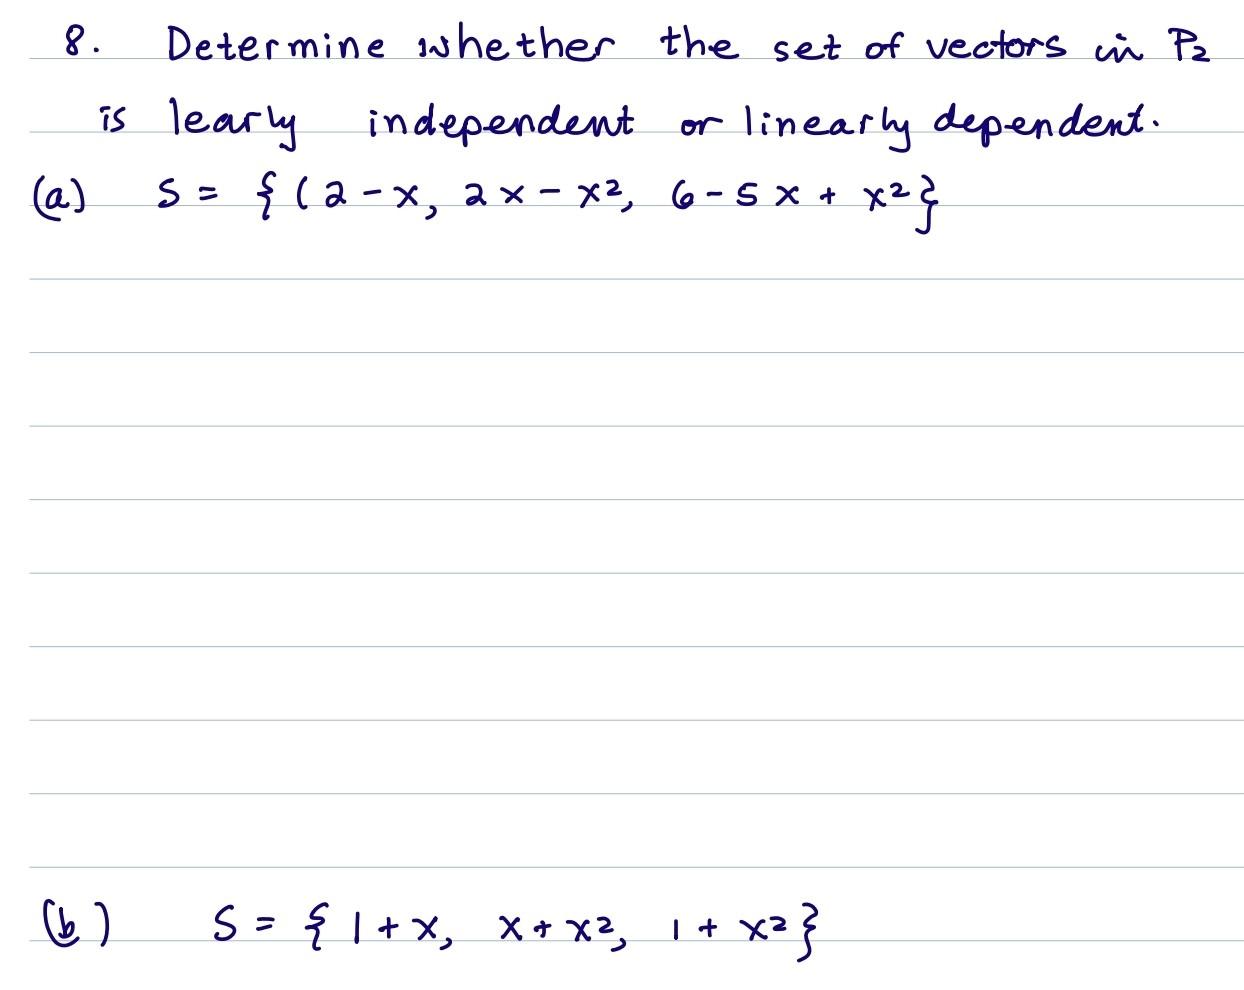 8. Determine whether the set of vectors in P₂
is learly independent or linearly dependent.
(a) S = { ( 2 - x, 2x - x², 6 - 5x + x² }
(b) S = { 1 + x, x + x², 1 + x² }